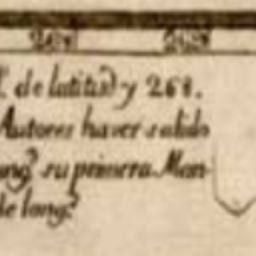 de latitud y 268.
Autores haver salido
su primera Man
de long.